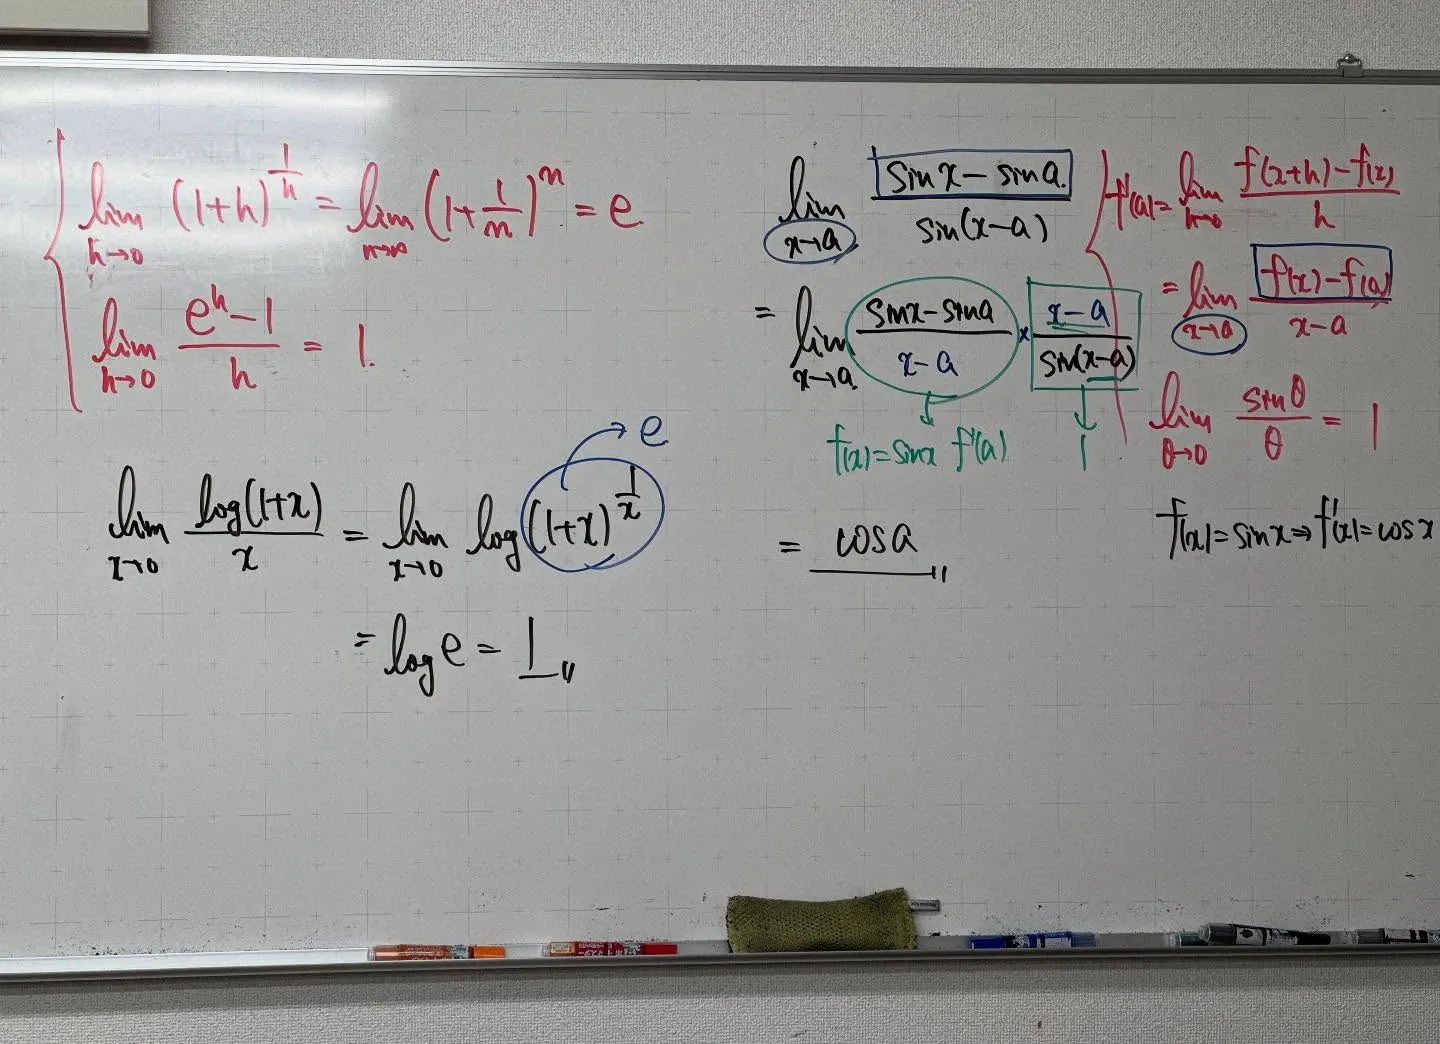 lim h→0 (1+h)^{1/h} = lim n→∞ (1+1/n)^n = e
lim h→0 (e^h-1)/h = 1.
lim x→0 log(1+x)/x = lim x→0 log(1+x)^{1/x} → e
= log e = 1
lim x→a (sinx-sina)/sin(x-a)
= lim x→a (sinx-sina)/(x-a) × (x-a)/sin(x-a)
f(x)=sinx f'(a) 1
= cosa
f'(a)=lim h→0 (f(x+h)-f(x))/h
= lim x→a (f(x)-f(a))/(x-a)
lim θ→0 sinθ/θ = 1
f(x)=sinx⇒f'(x)=cosx